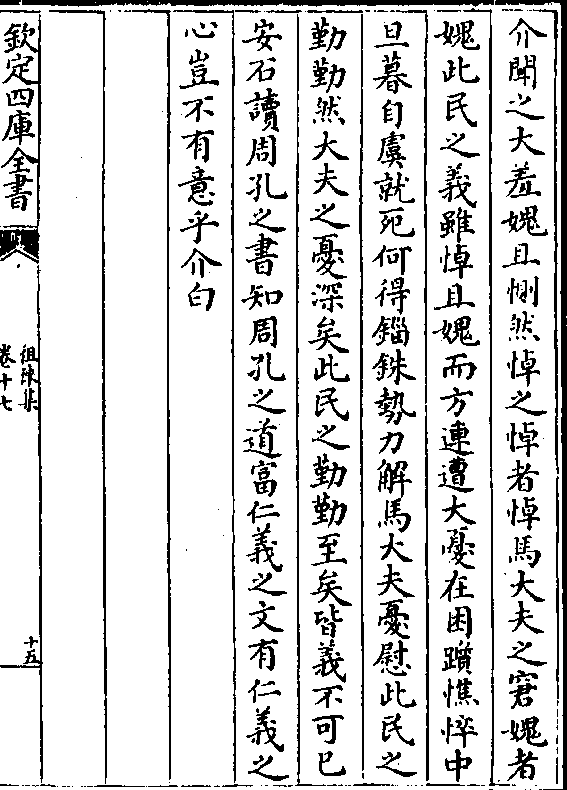 介聞之大羞媿且惻然悼之悼者悼馬大夫之窘媿者
媿此民之義雖悼且媿而方連遭大憂在困躓憔悴中
旦暮自虞就死何得錙銖勢力解馬大夫憂慰此民之
勤勤然大夫之憂深矣此民之勤勤至矣皆義不可已
安石讀周孔之書知周孔之道富仁義之文有仁義之
心豈不有意乎介白
欽定四庫全書
徂徠集
卷十七
十五